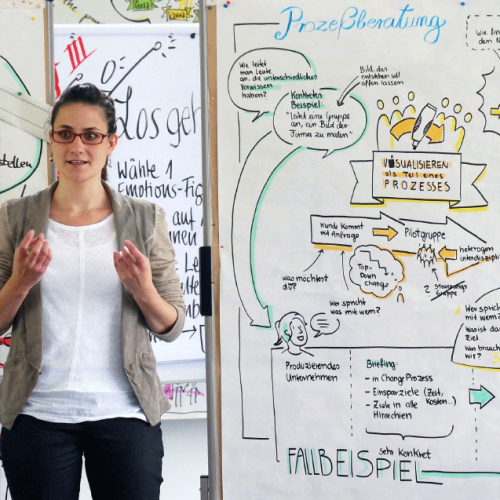 Prozeßberatung
Wie leitet
man Leute
an, die unterschiedliches
Vorwissen
haben?
Konkretes
Beispiel:
"Leitet eine Gruppe
an, ein Bild der
Firma zu malen"
Bild, das
entstehen soll
offen lassen
VISUALISIEREN
als Teil eines
PROZESSES
Kunde kommt
mit Anfrage
Pilotgruppe
heterogen
Was möchtest
du?
Top-
Down
Change
Wer spricht
was mit wem?
2
Gruppe
Wer spricht
mit wem?
Was ist da
Ziel
Was brauch
wir?
Produzierendes
Unternehmen
Briefing:
- in Change Prozess
- Einsparziele (Zeit,
Kosten...)
- Ziele in alle
Hierarchien
sehr konkret
FALLBEISPIEL
Wie
den N
III
Los geh
Wähle 1
Emotions-Fig
auf
nnen
= Le
stellen